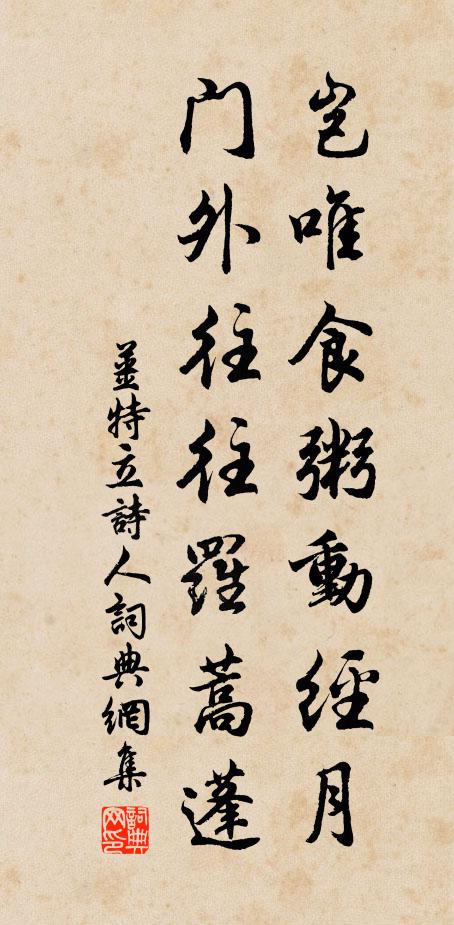 豈唯食粥動經月
門外往往羅蒿蓬
姜特立詩人詞典網集
詞典
网印